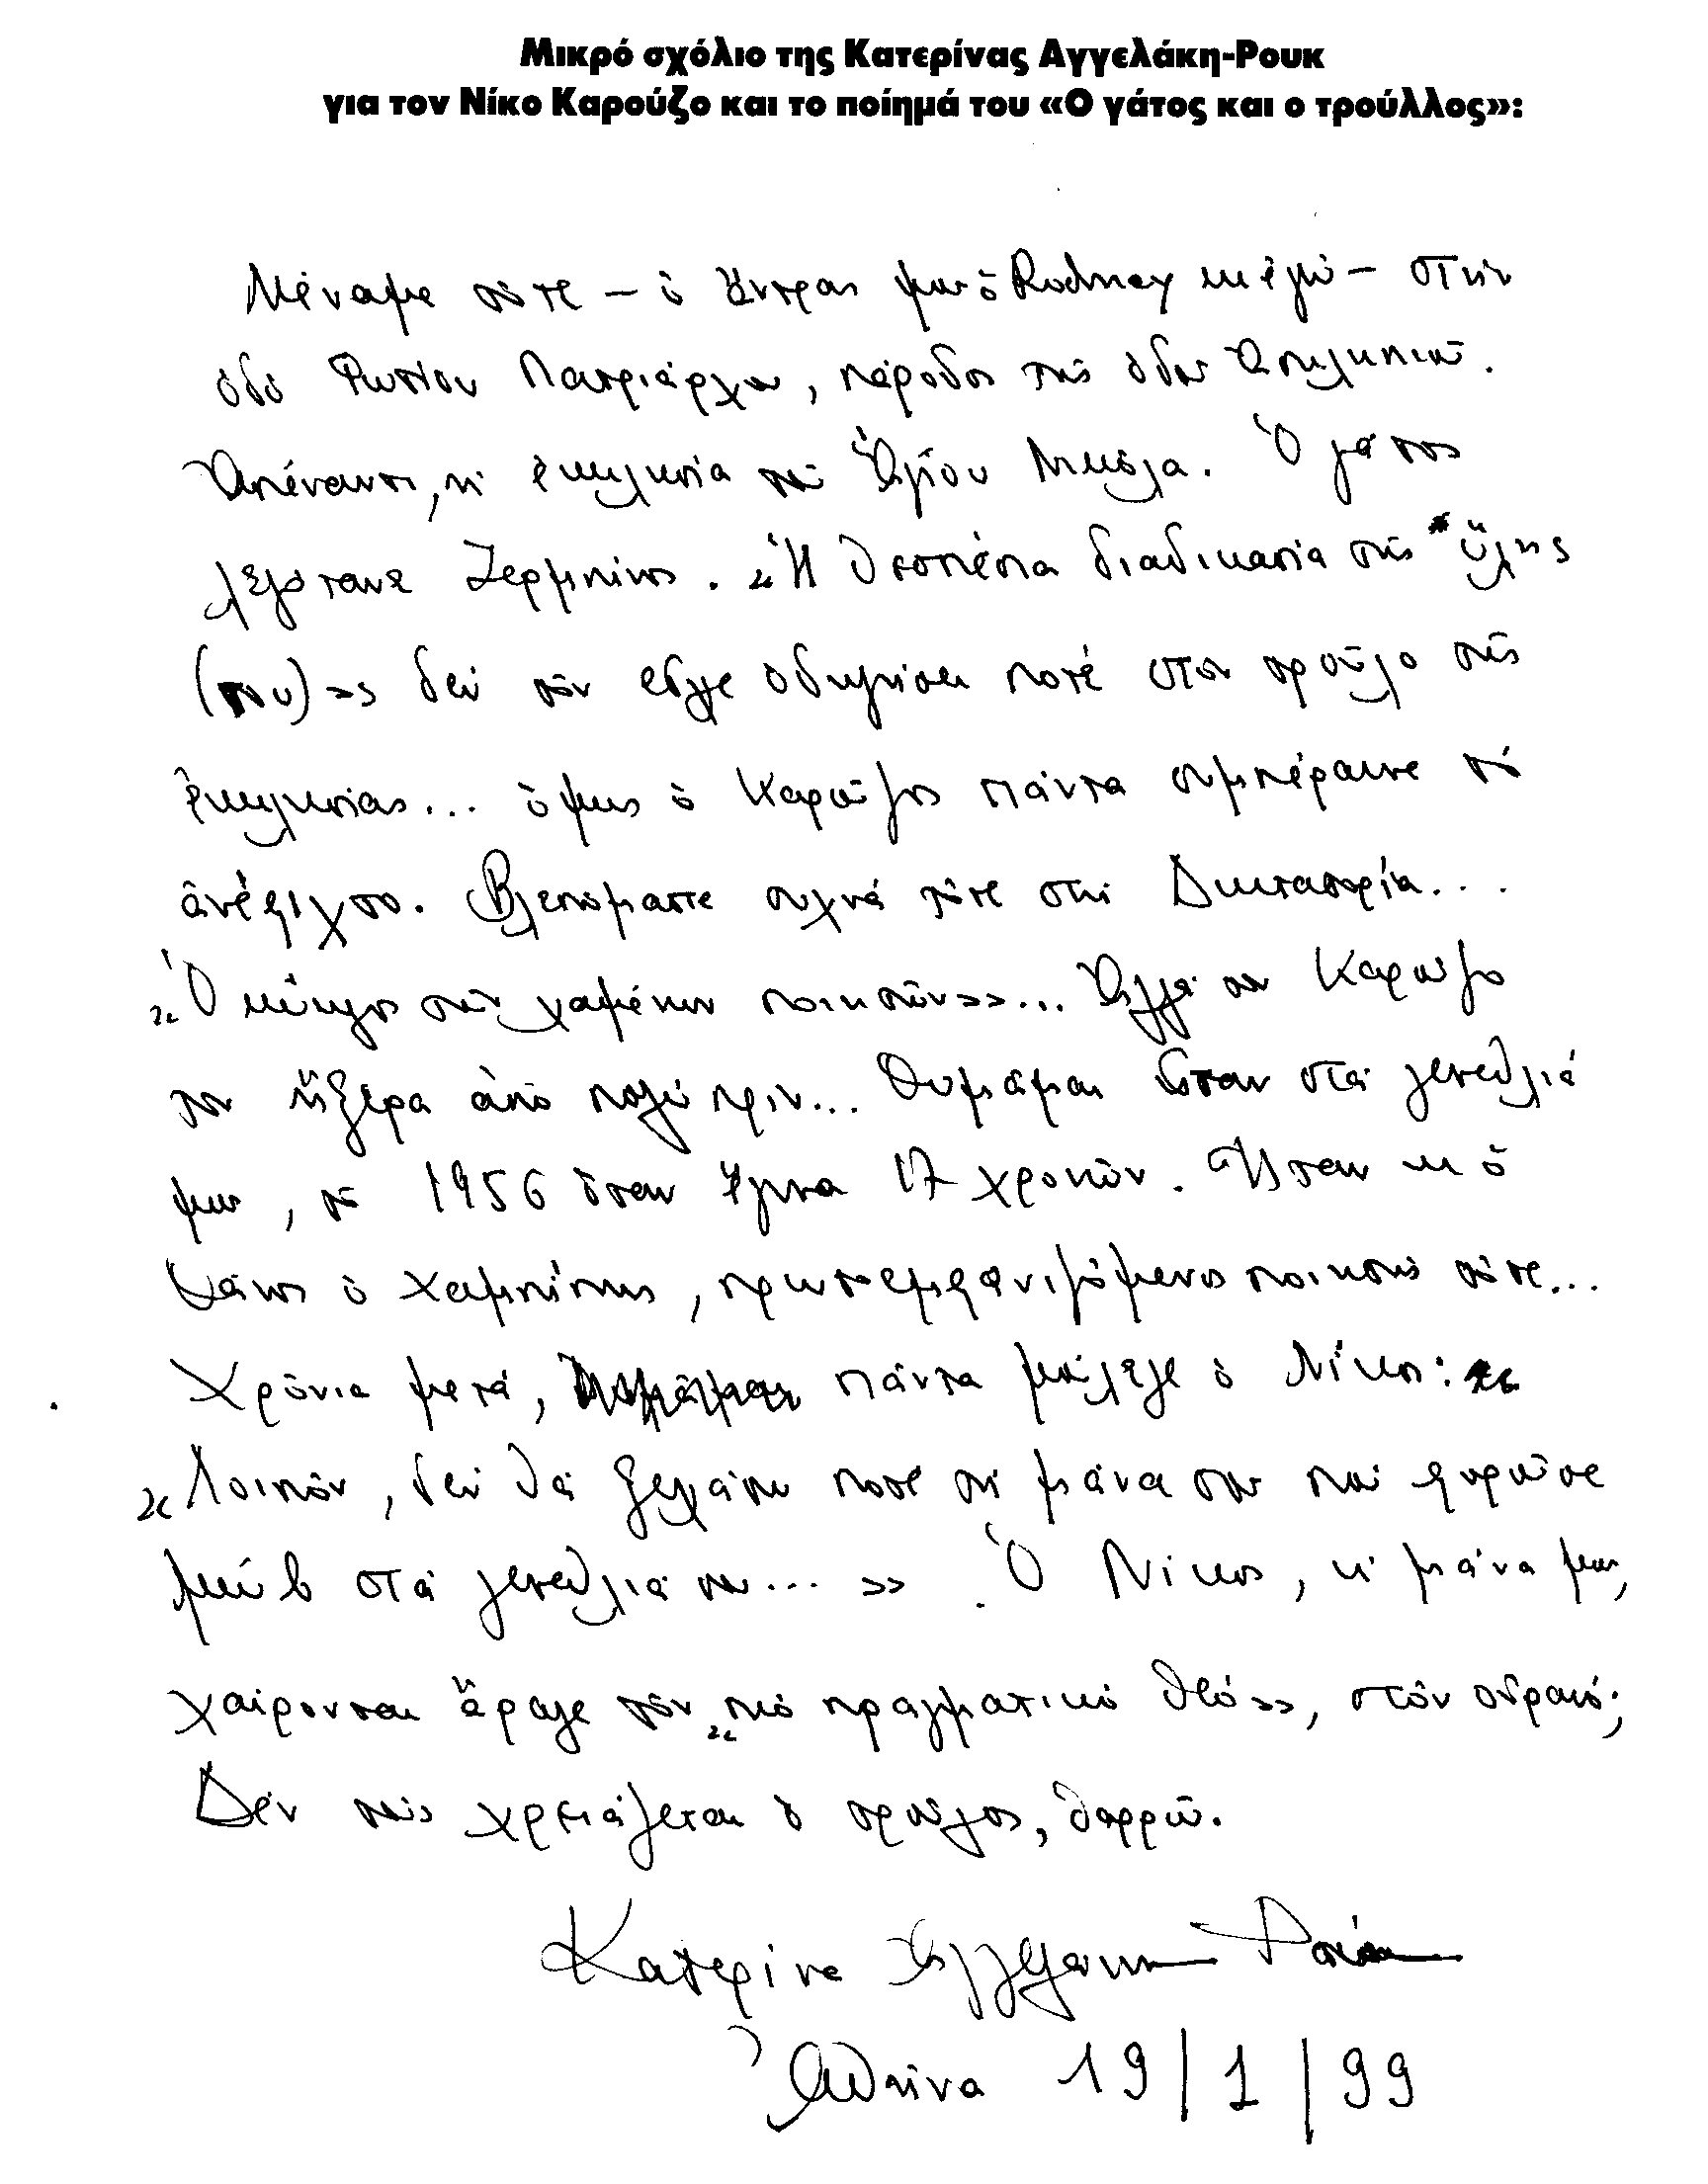 Μικρό σχόλιο της Κατερίνας Αγγελάκη-Ρουκ
για τον Νίκο Καρούζο και το ποίημά του «Ο γάτος και ο τρούλλος»:
Μέναμε τότε – ὁ ἄντρας μου ὁ Rodney κι ἐγώ – στήν
ὁδό Φωτίου Πατριάρχου, πάροδος τῆς ὁδοῦ Ἀσκληπιοῦ.
Ἀπέναντι, ἡ ἐκκλησία τοῦ Ἁγίου Νικόλα. Ὁ γάτος
λεγότανε Ζερμπίνος. «Ἡ θεσπέσια διαδικασία τῆς ὕλης
(του)» δέν τόν εἶχε ὁδηγήσει ποτέ στόν τροῦλο τῆς
ἐκκλησίας... ὅμως ὁ Καροῦζος πάντα συμπέραινε τό
ἀνέφιχτο. Βλεπόμαστε συχνά τότε στή Δικτατορία...
«Ὁ κύκλος τῶν χαμένων ποιητῶν»... Ἀλλά τόν Καροῦζο
τόν ἤξερα ἀπό πολύ πρίν... Θυμᾶμαι ἦταν στά γενέθλιά
μου, τό 1956 ὅταν ἔγινα 17 χρονῶν. Ἦταν κι ὁ
Θάνος ὁ , πρωτοεμφανιζόμενος ποιητής τότε...
Χρόνια μετά, πάντα μοὔλεγε ὁ Νίκος:
«Λοιπόν, δέν θά ξεχάσω ποτέ τή μάνα σου πού φοροῦσε
μώβ στά γενέθλιά σου...» Ὁ Νίκος, ἡ μάνα μου,
χαίρονται ἄραγε τόν «πιό πραγματικό Θεό», στόν οὐρανό;
Δέν τούς χρειάζεται ὁ τροῦλος, θαρρῶ.
Κατερίνα Ἀγγελάκη Ρούκ
Ἀθήνα 19/1/99